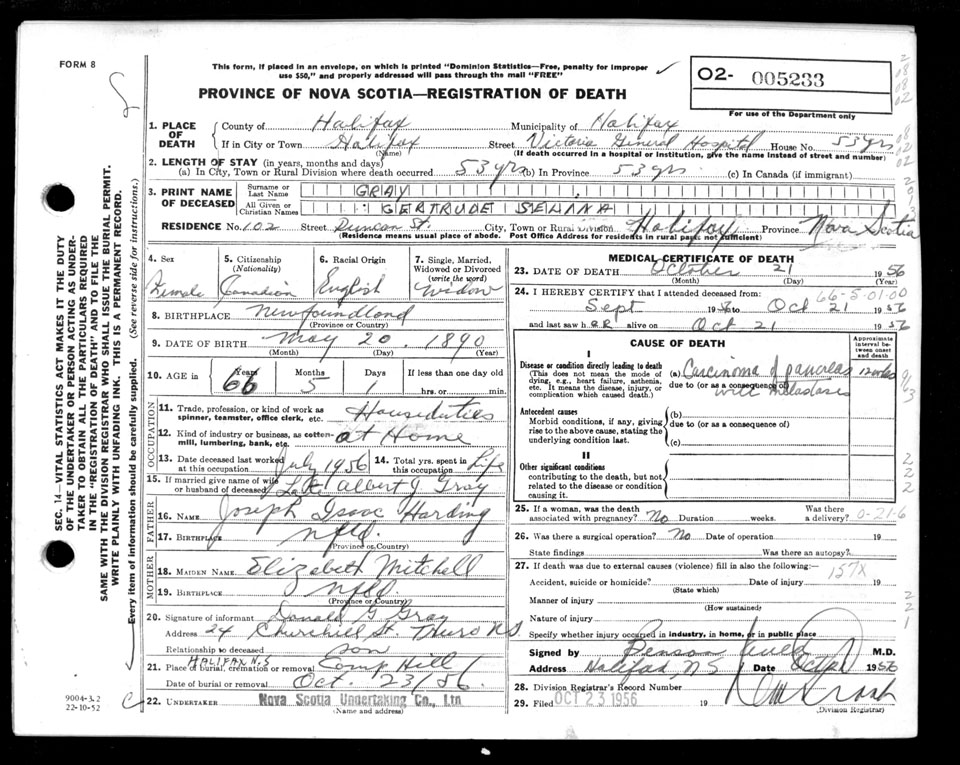 FORM 8
This form, if placed in an envelope, on which is printed "Dominion Statistics—Free, penalty for improper
use $50," and properly addressed will pass through the mail "FREE"
02- 005233
PROVINCE OF NOVA SCOTIA—REGISTRATION OF DEATH
For use of the Department only
1. PLACE OF DEATH
County of Halifax Municipality of Halifax
If in City or Town Halifax Street Victoria General Hospital House No. 53 yrs
(Name) (If death occurred in a hospital or institution, give the name instead of street and number)
2. LENGTH OF STAY (in years, months and days)
(a) In City, Town or Rural Division where death occurred 53 yrs (b) In Province 53 yrs (c) In Canada (if immigrant)
3. PRINT NAME OF DECEASED
Surname or Last Name GRAY
All Given or Christian Names GERTRUDE SELINA
RESIDENCE No. 102 Street Duncan St. City, Town or Rural Division Halifax Province Nova Scotia
(Residence means usual place of abode. Post Office Address for residents in rural parts not sufficient)
4. Sex
Female
5. Citizenship
(Nationality)
Canadian
6. Racial Origin
English
7. Single, Married,
Widowed or Divorced
(write the word)
Widow
8. BIRTHPLACE Newfoundland
(Province or Country)
9. DATE OF BIRTH May 20 1890
(Month) (Day) (Year)
10. AGE in Years 66 Months 5 Days 1 If less than one day old
hrs. or min.
OCCUPATION
11. Trade, profession or kind of work as
spinner, teamster, office clerk, etc. Houseduties
12. Kind of industry or business, as cotten-
mill, lumbering, bank, etc. at Home
13. Date deceased last worked
at this occupation July 1956
14. Total yrs. spent in
this occupation Life
15. If married give name of wife
or husband of deceased Late Albert J. Gray
FATHER
16. NAME Joseph Isaac Harding
17. BIRTHPLACE Nfld.
(Province or Country)
MOTHER
18. MAIDEN NAME Elizabeth Mitchell
19. BIRTHPLACE Nfld
(Province or Country)
20. Signature of informant Donald G. Gray
Address 24 Churchill St. Truro N.S.
Relationship to deceased son
HALIFAX N.S
21. Place of burial, cremation or removal Camp Hill
Date of burial or removal Oct. 23/56.
22. UNDERTAKER Nova Scotia Undertaking Co., Ltd
(Name and address)
MEDICAL CERTIFICATE OF DEATH
23. DATE OF DEATH October 21 1956
(Month) (Day)
24. I HEREBY CERTIFY that I attended deceased from: 66-5-01-00
Sept 1956 to Oct 21 1956
and last saw her alive on Oct 21 1956
CAUSE OF DEATH
Approximate
interval be-
tween onset
and death
I
Disease or condition directly leading to death
(This does not mean the mode of
dying, e.g., heart failure, asthenia,
etc. It means the disease, injury, or
complication which caused death.)
(a) Carcinoma of pancreas
due to (or as a consequence of)
with metastasis
Antecedent causes
Morbid conditions, if any, giving
rise to the above cause, stating the
underlying condition last.
(b)
due to (or as a consequence of)
(c)
II
Other significant conditions
contributing to the death, but not
related to the disease or condition
causing it.
25. If a woman, was the death
associated with pregnancy? No Duration weeks. Was there
a delivery? 0-21-6
26. Was there a surgical operation? No Date of operation 19
State findings Was there an autopsy?
27. If death was due to external causes (violence) fill in also the following:
157X
Accident, suicide or homicide? Date of injury 19
(State which)
Manner of injury
(How sustained)
Nature of injury
Specify whether injury occurred in industry, in home, or in public place
Signed by Benson M.D.
Address Halifax, N.S Date 1956
28. Division Registrar's Record Number
29. Filed OCT 23 1956 19
(Division Registrar)
SEC. 14—VITAL STATISTICS ACT MAKES IT THE DUTY
OF THE UNDERTAKER OR PERSON ACTING AS UNDER-
TAKER TO OBTAIN ALL THE PARTICULARS REQUIRED
IN THE "REGISTRATION OF DEATH" AND TO FILE THE
SAME WITH THE DIVISION REGISTRAR WHO SHALL ISSUE THE BURIAL PERMIT.
WRITE PLAINLY WITH UNFADING INK. THIS IS A PERMANENT RECORD.
Every item of information should be carefully supplied. (See reverse side for instructions.)
9004-3.2
22-10-52